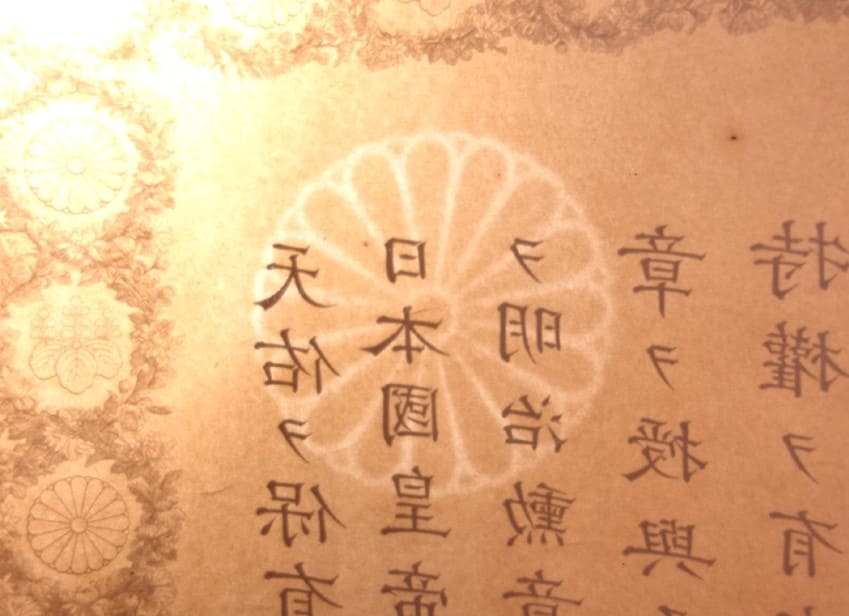 天佑ヲ保有
日本國皇帝
ヲ明治勳章
章ヲ授與
特權ヲ有